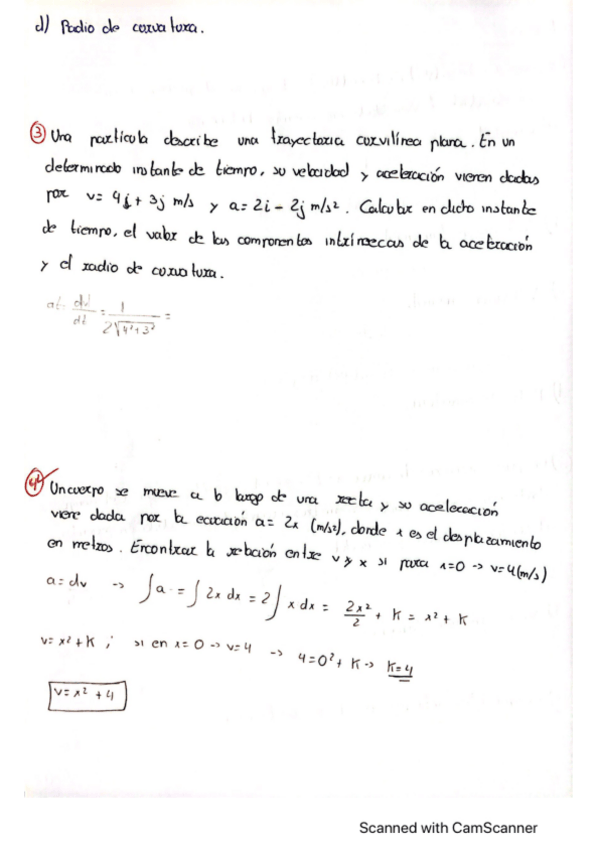 d) Radio de curvatura.
③ Una partícula describe una trayectoria curvilínea plana. En un
determinado instante de tiempo, su velocidad y aceleración vienen dadas
por v= 4i + 3j m/s y a= 2i - 2j m/s². Calcular en dicho instante
de tiempo, el valor de las componentes intrínsecas de la aceleración
y el radio de curvatura.
at= dv/dt = 1/2√4²+3² =
④ Un cuerpo se mueve a lo largo de una recta y su aceleración
viene dada por la ecuación a= 2x (m/s²), donde x es el desplazamiento
en metros. Encontrar la relación entre v y x si para x=0 → v=4(m/s)
a= dv → ∫a = ∫2x dx = 2∫x dx = 2x²/2 + K = x² + K
v= x² + K ; si en x=0 → v=4 → 4=0² + K → K=4
v= x² + 4
Scanned with CamScanner